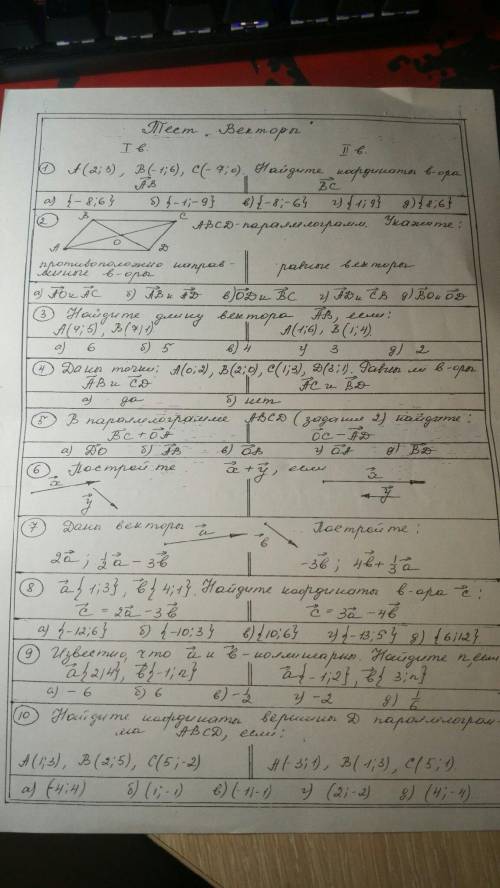 Тест „Векторы"
I в. II в.
1 A(2;3), B(-1;6), C(-9;0) Найдите координаты в-ора
AB BC
а) {-8;6} б) {-1;-9} в) {-8;-6} г) {1;9} д) {8;6}
2 ABCD-параллелограмм. Укажите:
B C
O
A D
противоположно направ- равные векторы
ленные в-оры
а) AO и AC б) AB и AD в) OD и BC г) AD и CB д) BO и OD
3 Найдите длину вектора AB, если:
A(9;5), B(9;1) A(1;6), B(1;4)
а) 6 б) 5 в) 4 г) 3 д) 2
4 Даны точки: A(0;2), B(2;0), C(1;3), D(3;1). Равны ли в-оры
AB и CD AC и BD
а) да б) нет
5 В параллелограмме ABCD (задание 2) найдите:
BC + OA OC - AD
а) DO б) AB в) OB г) OA д) BD
6 Постройте x + y, если
x x
y y
7 Даны векторы a b Постройте:
2a; 1/2 a - 3b -3b; 4b + 1/3 a
8 a{1;3}, b{4;1}. Найдите координаты в-ора c:
c = 2a - 3b c = 3a - 4b
а) {-12;6} б) {-10;3} в) {10;6} г) {-13;5} д) {6;12}
9 Известно, что a и b - коллинеарны. Найдите n, если
a{2;4}, b{-1;n} a{-1;2}, b{3;n}
а) -6 б) 6 в) -1/2 г) -2 д) 1/6
10 Найдите координаты вершины D параллелограм-
ма ABCD, если:
A(1;3), B(2;5), C(5;-2) A(-3;1), B(-1;3), C(5;1).
а) (-4;4) б) (1;-1) в) (-1;-1) г) (2;-2) д) (4;-4)